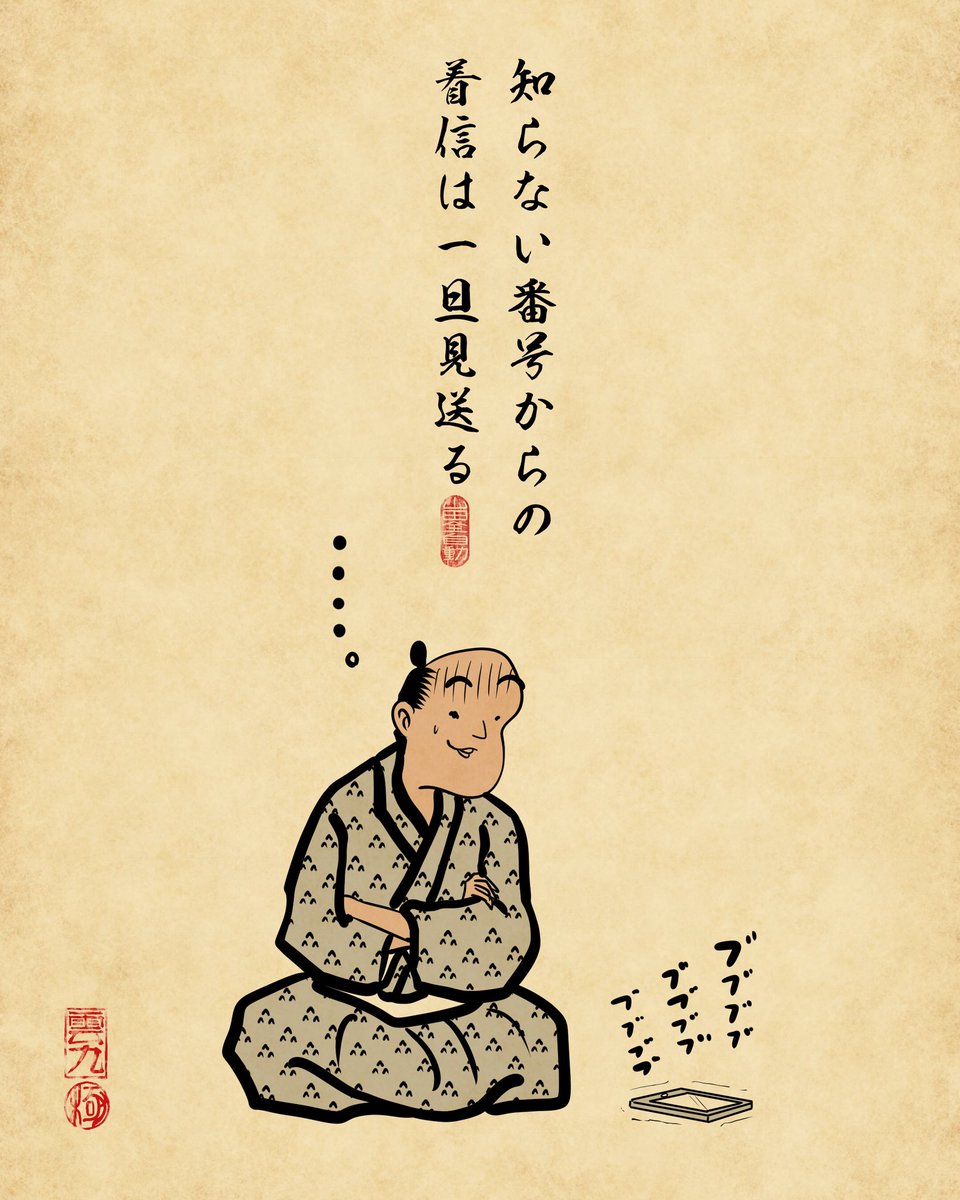 知らない番号からの
着信は一旦見送る
山田全自動
ブブブブ
ブブブブ
ブブブブ